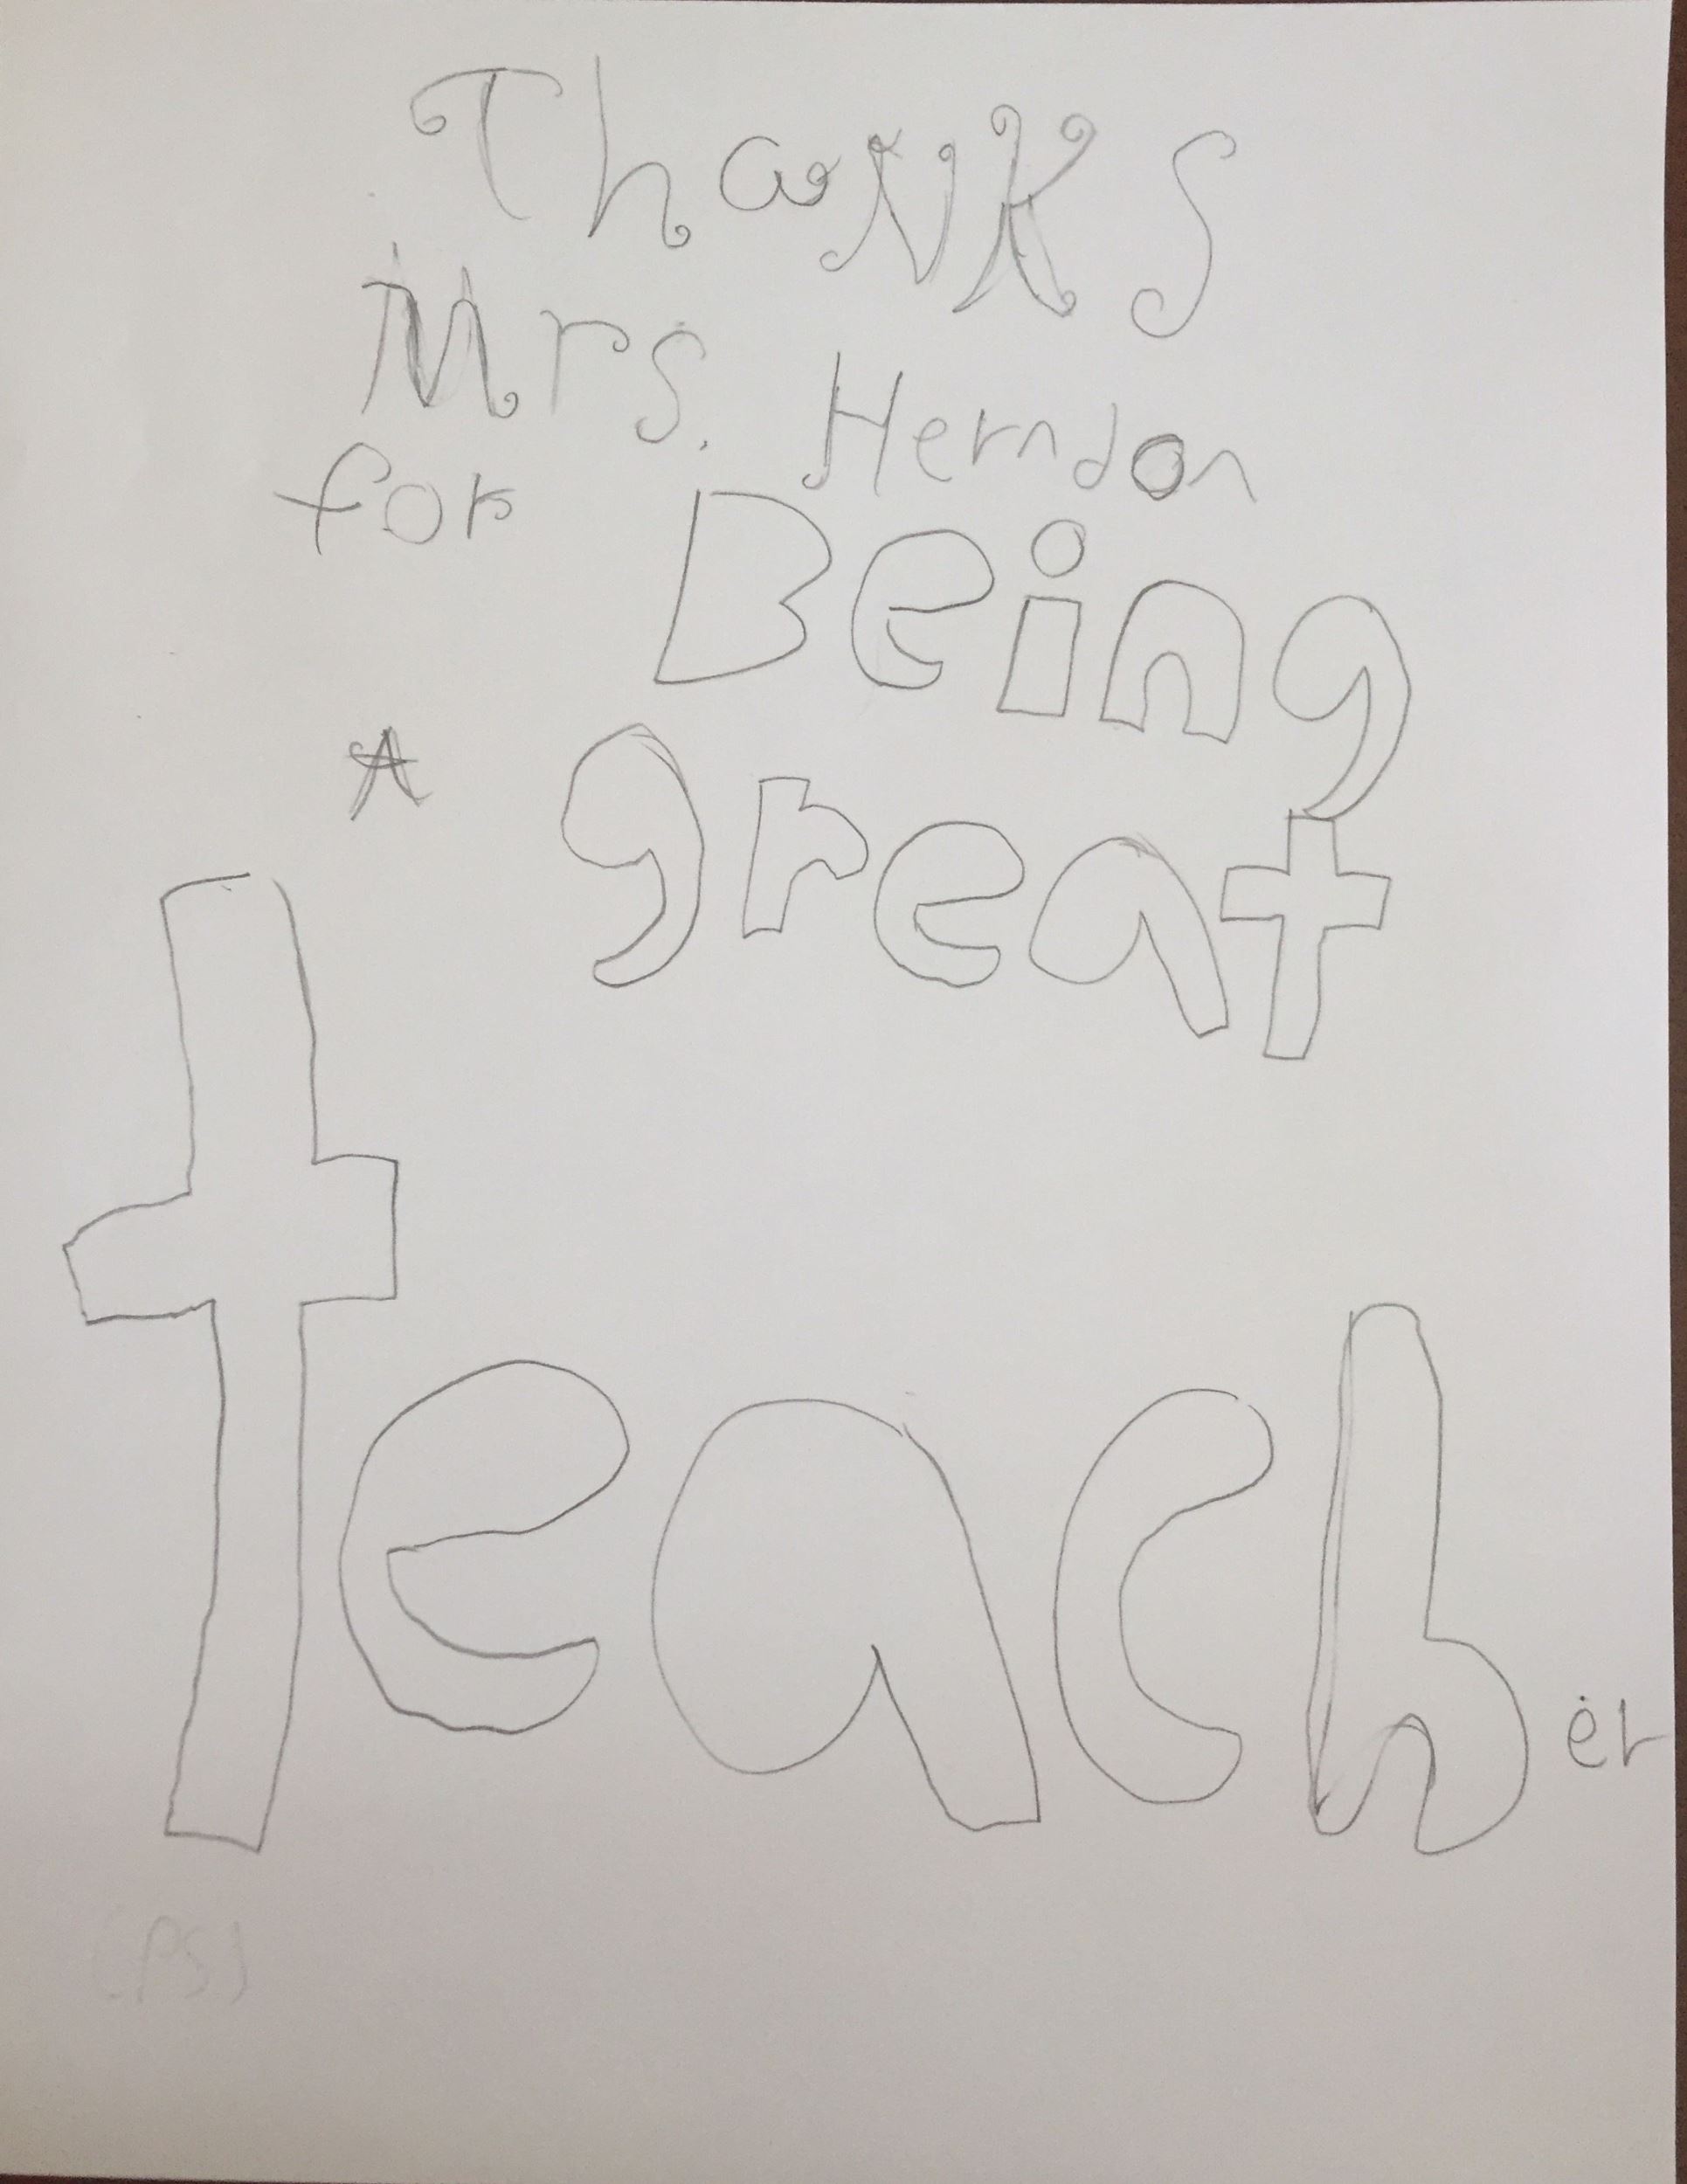 ThaNKS
Mrs. Herndon
for Being
A great
teacher
(PS)